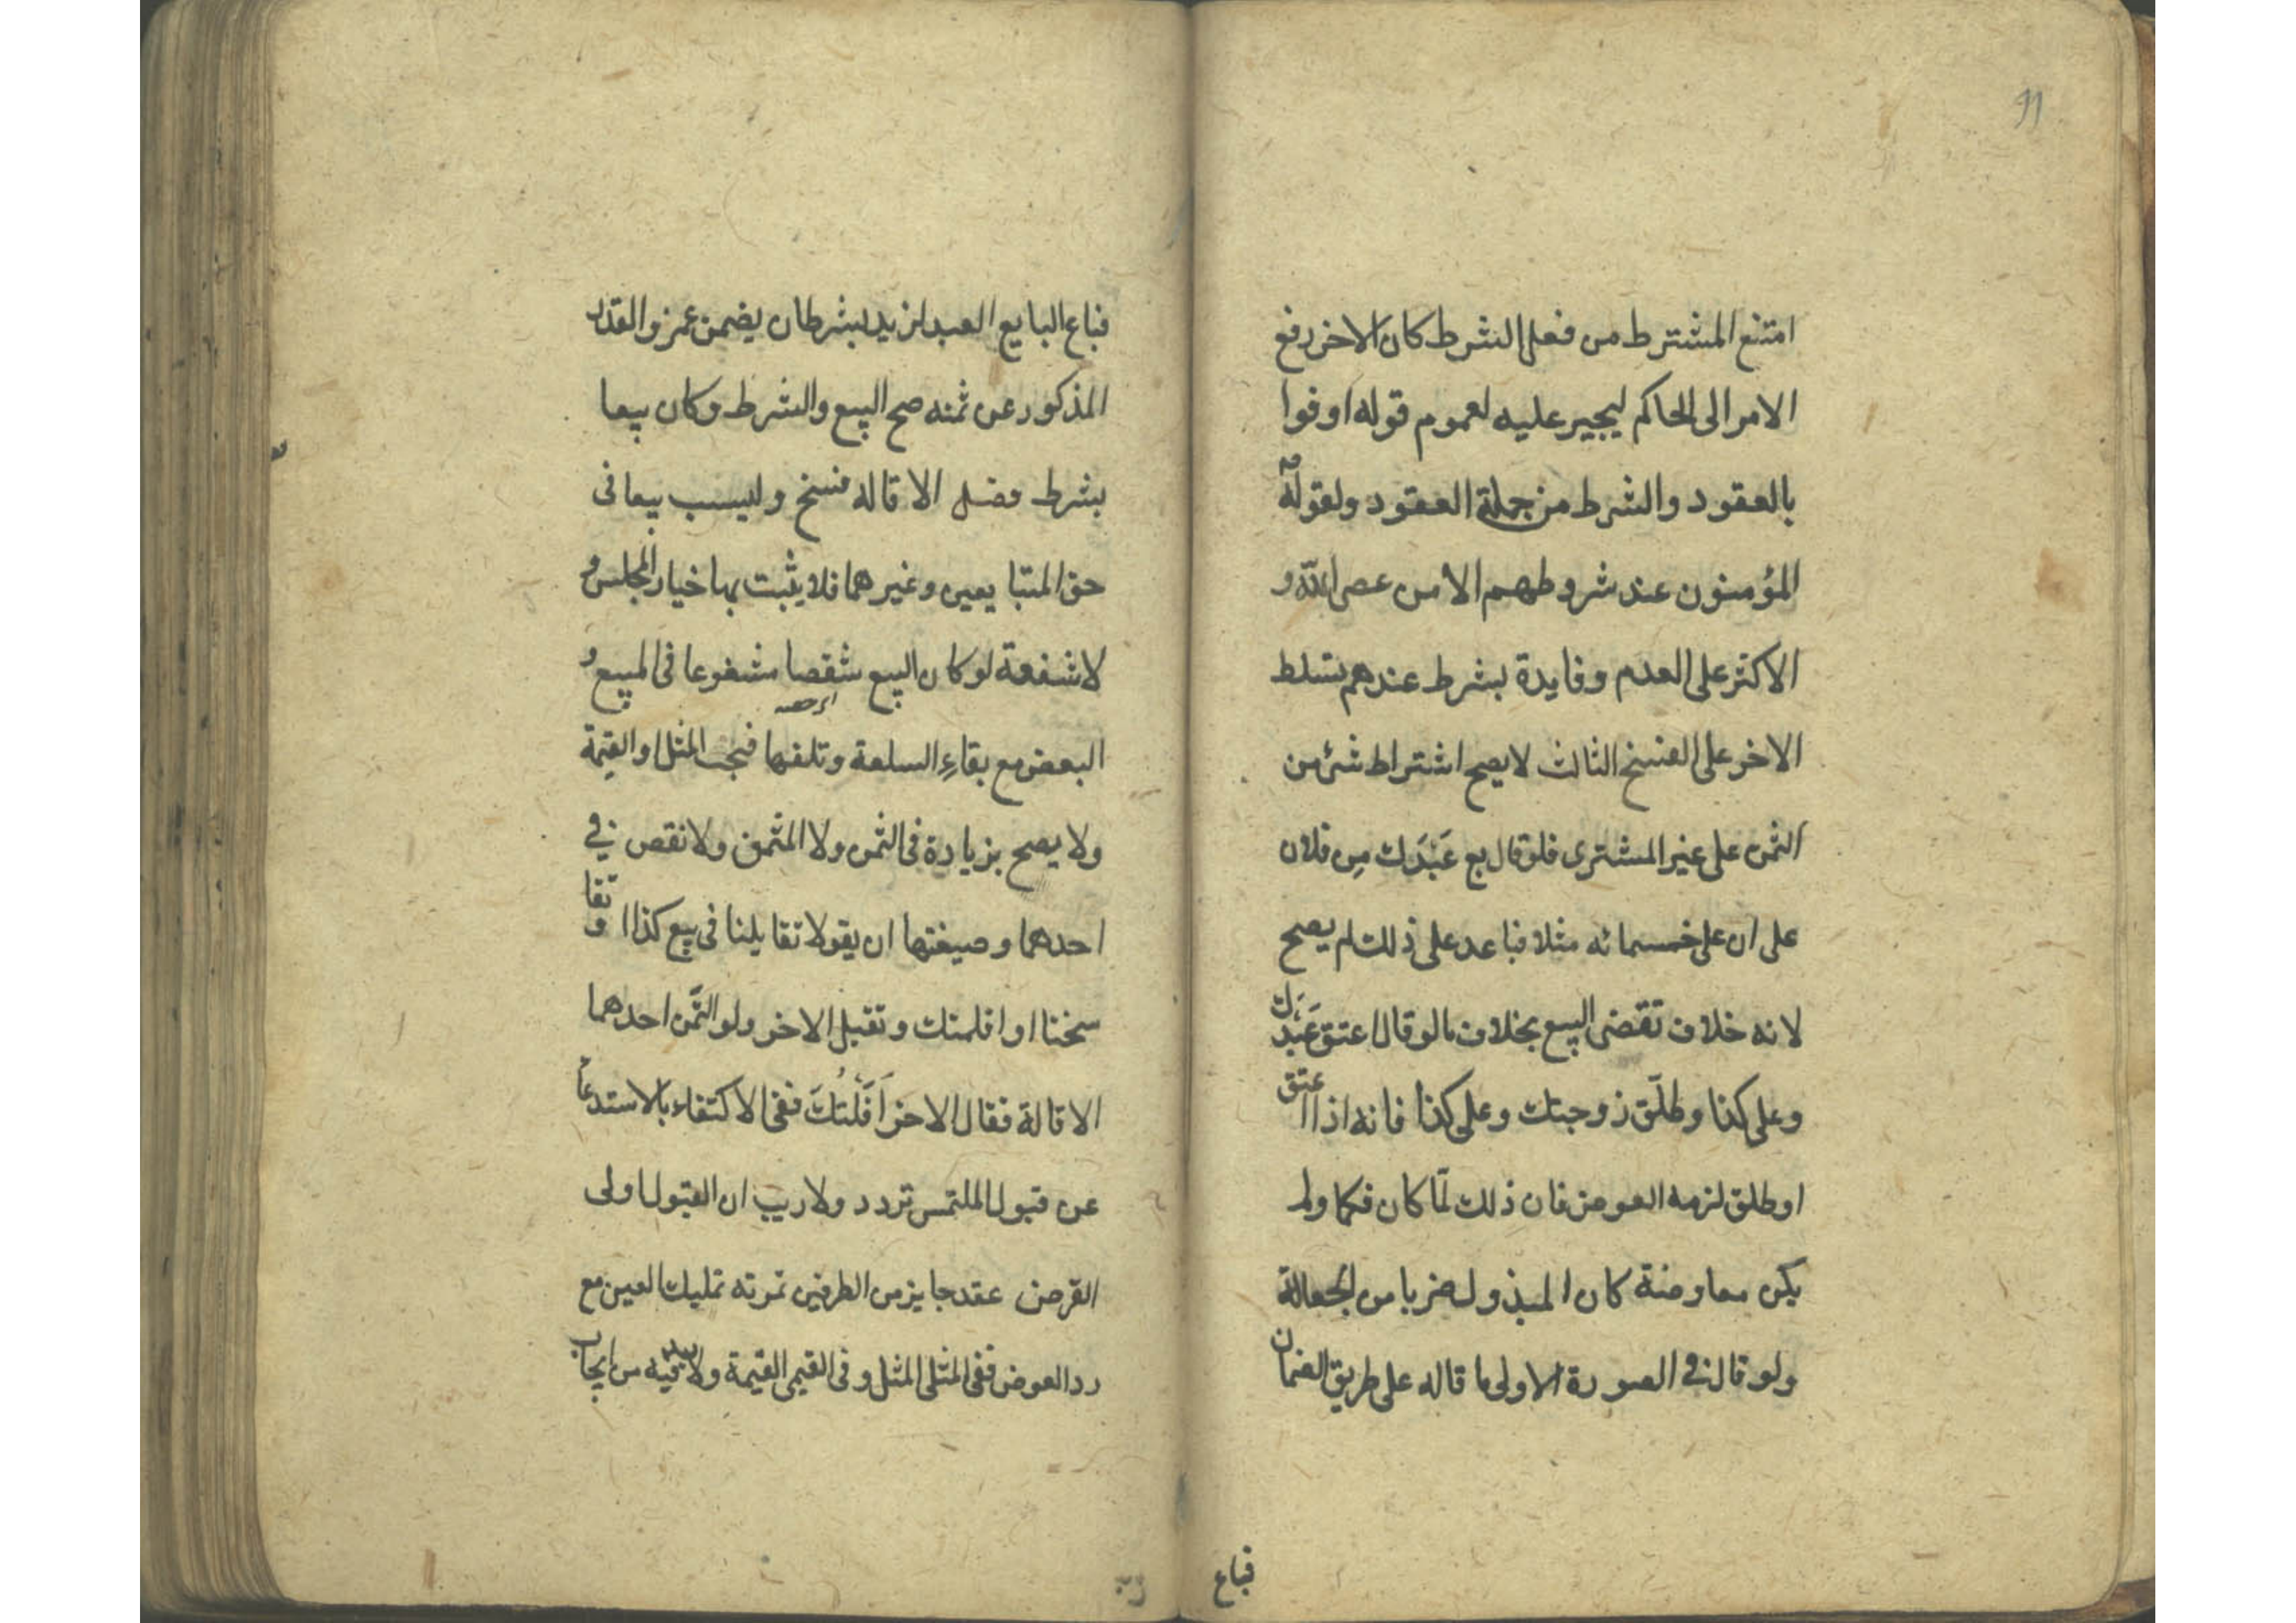 11
امتنع المشترط من فعل الشرط كان للاخر رفع
الامر الى الحاكم ليجبر عليه لعموم قوله اوفوا
بالعقود والشرط من جملة العقود ولقوله
المؤمنون عند شروطهم الا من عصى الله و
الاكثر على العدم وفايدة بشرط عندهم تسلط
الاخر على الفسخ الثالث لا يصح اشتراط شئ من
الثمن على غير المشترى فلو قال بع عَبْدَك مِن فلان
على ان على خمسمائه مثلا فباعه على ذلك لم يصح
لانه خلاف تقضى البيع بخلاف ما لو قال اعتق عَبْدَك
وعلى كذا وطلّق زوجتك وعلى كذا فانه اذا اعتق
او طلق لزمه العوض فان ذلك لمّا كان فكا ولم
يكن معاوضة كان المبذول ضربا من الجعالة
ولو قال فى الصورة الاولى ما قاله على طريق الضمان
فباع
فباع البايع العبد لزيد بشرط ان يضمن عمرو القدر
المذكور عن ثمنه صح البيع والشرط وكان بيعا
بشرط فصل الاقاله فسخ وليست بيعا فى
حق المتبايعين وغيرهما فلا يثبت بها خيار المجلس و
لا شفعة لو كان البيع شقصا مشفوعا فى المبيع و
البعض مع بقاءِ السلعة وتلفها فيجب المثل او القيمة
ولا يصح بزيادة فى الثمن ولا المثمن ولا نقص فى
احدهما وصيغتها ان يقولا تقايلنا فى بيع كذا او تفا
سخنا او اقلتك وتقبل الاخر ولو التمن احدهما
الاقالة فقال الاخر اَقَلْتُكَ ففى الاكتفاء بالاستدعا
عن قبول الملتمس تردد ولا ريب ان القبول اولى
القرض عقد جايز من الطرفين ثمرته تمليك العين مع
رد العوض ففى المثلى المثل وفى القيمى القيمة ولا بد فيه من ايجاب